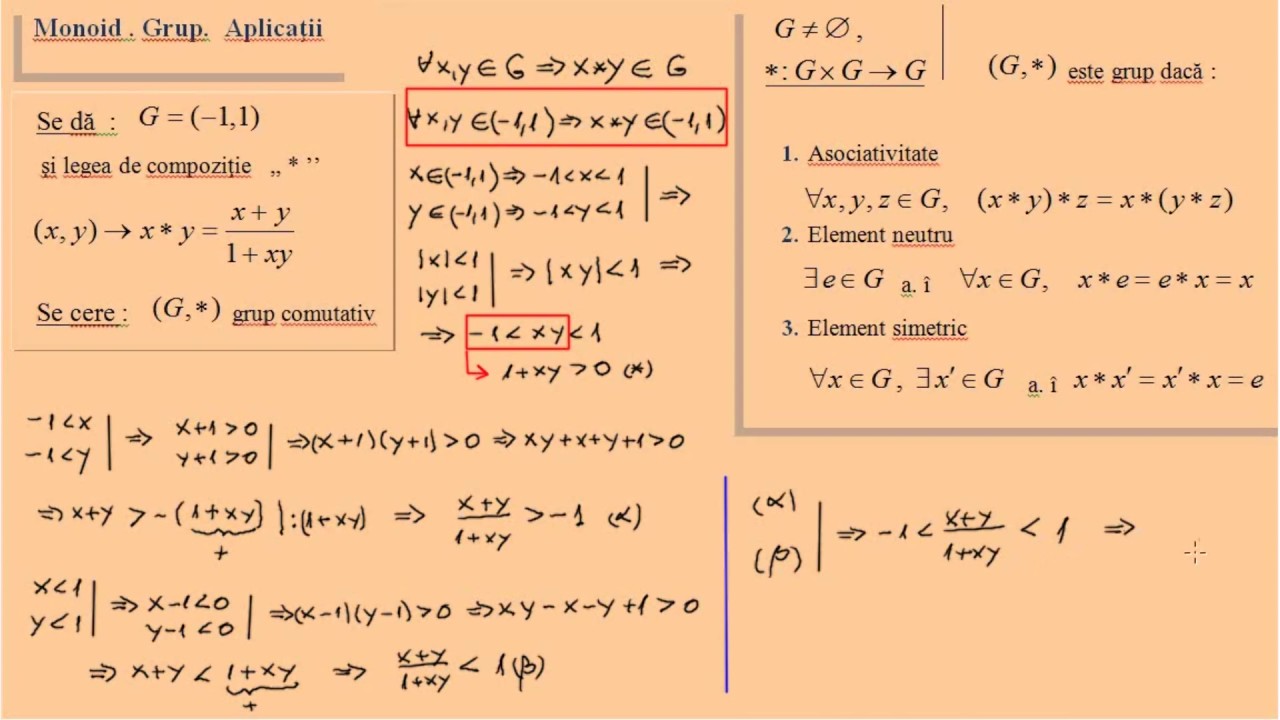 Monoid . Grup. Aplicații
Se dă : G = (−1,1)
și legea de compoziție „ * ’’
(x, y) → x * y = (x + y)/(1 + xy)
Se cere : (G,*) grup comutativ
∀x,y ∈ G ⇒ x*y ∈ G
∀x,y ∈(-1,1) ⇒ x*y ∈(-1,1)
x∈(-1,1) ⇒ -1<x<1 | ⇒
y∈(-1,1) ⇒ -1<y<1 |
|x|<1 | ⇒ |xy|<1 ⇒
|y|<1 |
⇒ -1 < xy < 1
1+xy > 0 (*)
G ≠ ∅ ,
* : G × G → G
(G,*) este grup dacă :
1. Asociativitate
∀x, y, z ∈ G, (x * y) * z = x * (y * z)
2. Element neutru
∃e ∈ G a. î ∀x ∈ G, x * e = e * x = x
3. Element simetric
∀x ∈ G, ∃x′ ∈ G a. î x * x′ = x′ * x = e
-1<x | ⇒ x+1>0 | ⇒(x+1)(y+1)>0 ⇒ xy+x+y+1>0
-1<y | y+1>0 |
⇒ x+y > -(1+xy) | :(1+xy) ⇒ (x+y)/(1+xy) > -1 (α)
+
x<1 | ⇒ x-1<0 | ⇒(x-1)(y-1)>0 ⇒ xy-x-y+1>0
y<1 | y-1<0 |
⇒ x+y < 1+xy ⇒ (x+y)/(1+xy) < 1 (β)
+
(α) | ⇒ -1 < (x+y)/(1+xy) < 1 ⇒
(β) |